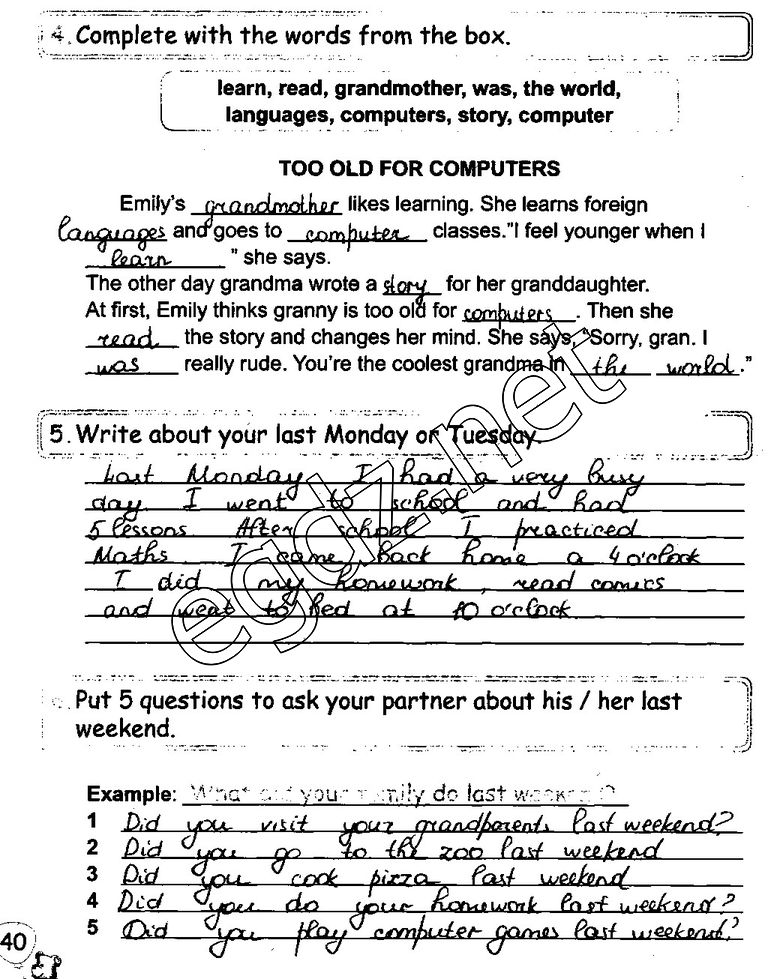 4. Complete with the words from the box.
learn, read, grandmother, was, the world,
languages, computers, story, computer
TOO OLD FOR COMPUTERS
Emily's grandmother likes learning. She learns foreign
languages and goes to computer classes."I feel younger when I
learn " she says.
The other day grandma wrote a story for her granddaughter.
At first, Emily thinks granny is too old for computers. Then she
read the story and changes her mind. She says, "Sorry, gran. I
was really rude. You're the coolest grandma in the world."
5. Write about your last Monday or Tuesday.
Last Monday I had a very busy
day. I went to school and had
5 lessons After school I practiced
Maths. I came back home a 4 o'clock
I did my homework, read comics
and went to bed at 10 o'clock.
egdz.net
Put 5 questions to ask your partner about his / her last
weekend.
Example: What did your family do last weekend?
1 Did you visit your grandparents last weekend?
2 Did you go to the zoo last weekend
3 Did you cook pizza last weekend
4 Did you do your homework last weekend?
5 Did you play computer games last weekend?
40